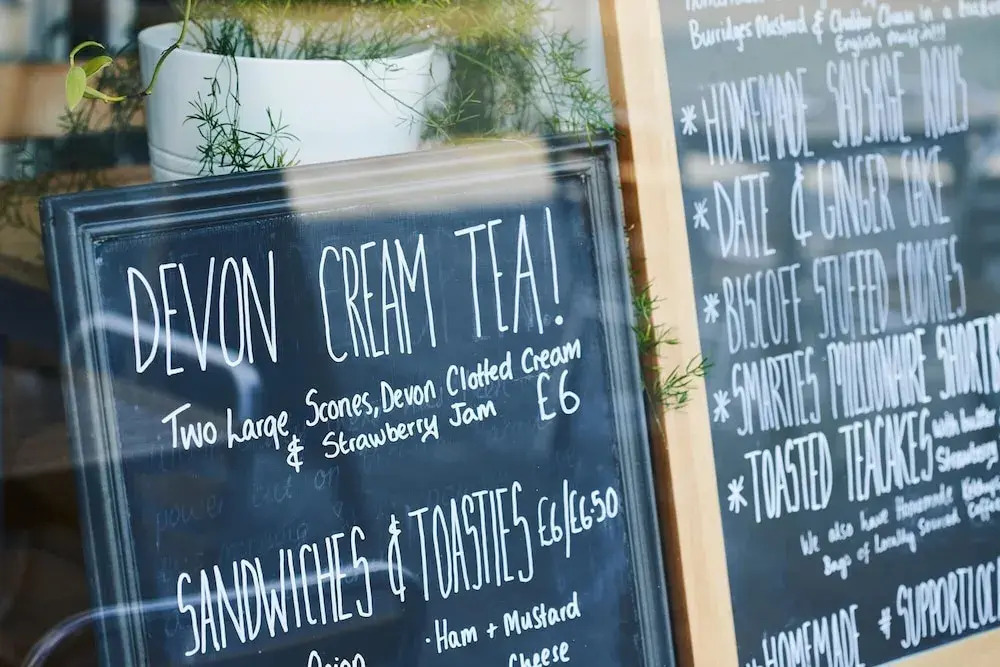 DEVON CREAM TEA!
Two Large Scones, Devon Clotted Cream
& Strawberry Jam £6
SANDWICHES & TOASTIES £6/£6.50
·Ham + Mustard
Cheese
Burridges Mustard & Cheddar Cheese in a
English muffin!!!
* HOMEMADE SAUSAGE ROLLS
* DATE & GINGER CAKE
* BISCOFF STUFFED COOKIES
* SMARTIES MILLIONAIRE SHORT
* TOASTED TEACAKES with butter
Strawberry
We also have Homemade
Bags of Locally Sourced Coffee
*HOMEMADE #SUPPORTLOC